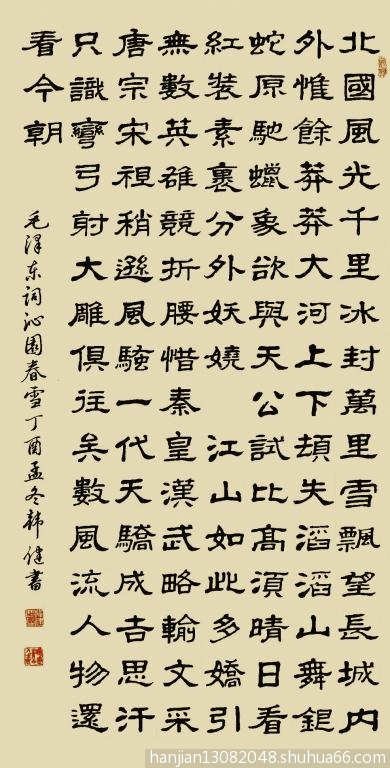 北國風光千里冰封萬里雪飄望長城內
外惟餘莽莽大河上下頓失滔滔山舞銀
蛇原馳蠟象欲與天公試比高須晴日看
紅裝素裹分外妖嬈 江山如此多嬌引
無數英雄競折腰惜秦皇漢武略輸文采
唐宗宋祖稍遜風騷一代天驕成吉思汗
只識彎弓射大雕俱往矣數風流人物還
看今朝
毛泽东词沁園春雪丁酉孟冬韩健書
hanjian13082048.shuhua66.com